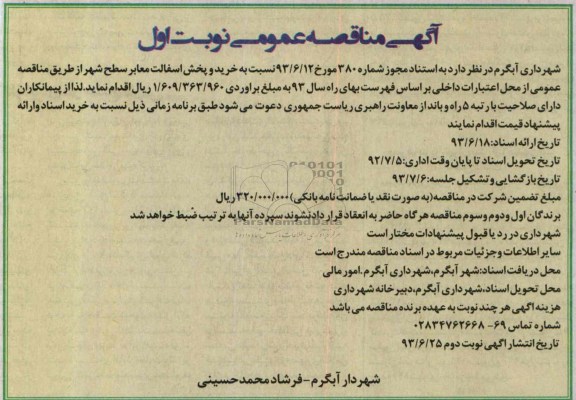 آگهی مناقصه عمومی نوبت اول
شهرداری آبگرم در نظر دارد به استناد مجوز شماره ۳۸۰ مورخ ۹۳/۶/۱۲ نسبت به خرید و پخش اسفالت معابر سطح شهر از طریق مناقصه
عمومی از محل اعتبارات داخلی بر اساس فهرست بهای راه سال ۹۳ به مبلغ براوردی ۱/۶۰۹/۳۶۳/۹۶۰ ریال اقدام نماید. لذا از پیمانکاران
دارای صلاحیت با رتبه ۵ راه و باند از معاونت راهبری ریاست جمهوری دعوت می شود طبق برنامه زمانی ذیل نسبت به خرید اسناد وارائه
پیشنهاد قیمت اقدام نمایند
تاریخ ارائه اسناد: ۹۳/۶/۱۸
تاریخ تحویل اسناد تا پایان وقت اداری: ۹۲/۷/۵
تاریخ بازگشایی و تشکیل جلسه: ۹۳/۷/۶
مبلغ تضمین شرکت در مناقصه (به صورت نقد یا ضمانت نامه بانکی) ۳۲۰/۰۰۰/۰۰۰ ریال
برندگان اول ودوم وسوم مناقصه هرگاه حاضر به انعقاد قرار دادنشوند سپرده آنها به ترتیب ضبط خواهد شد
شهرداری در رد یا قبول پیشنهادات مختار است
سایر اطلاعات وجزئیات مربوط در اسناد مناقصه مندرج است
محل دریافت اسناد: شهر آبگرم، شهرداری آبگرم. امور مالی
محل تحویل اسناد، شهرداری آبگرم، دبیر خانه شهرداری
هزینه اگهی هر چند نوبت به عهده برنده مناقصه می باشد
شماره تماس ۶۹- ۰۲۸۳۴۷۶۲۶۶۸
تاریخ انتشار اگهی نوبت دوم ۹۳/۶/۲۵
شهردار آبگرم - فرشاد محمدحسینی
ParsNamadData